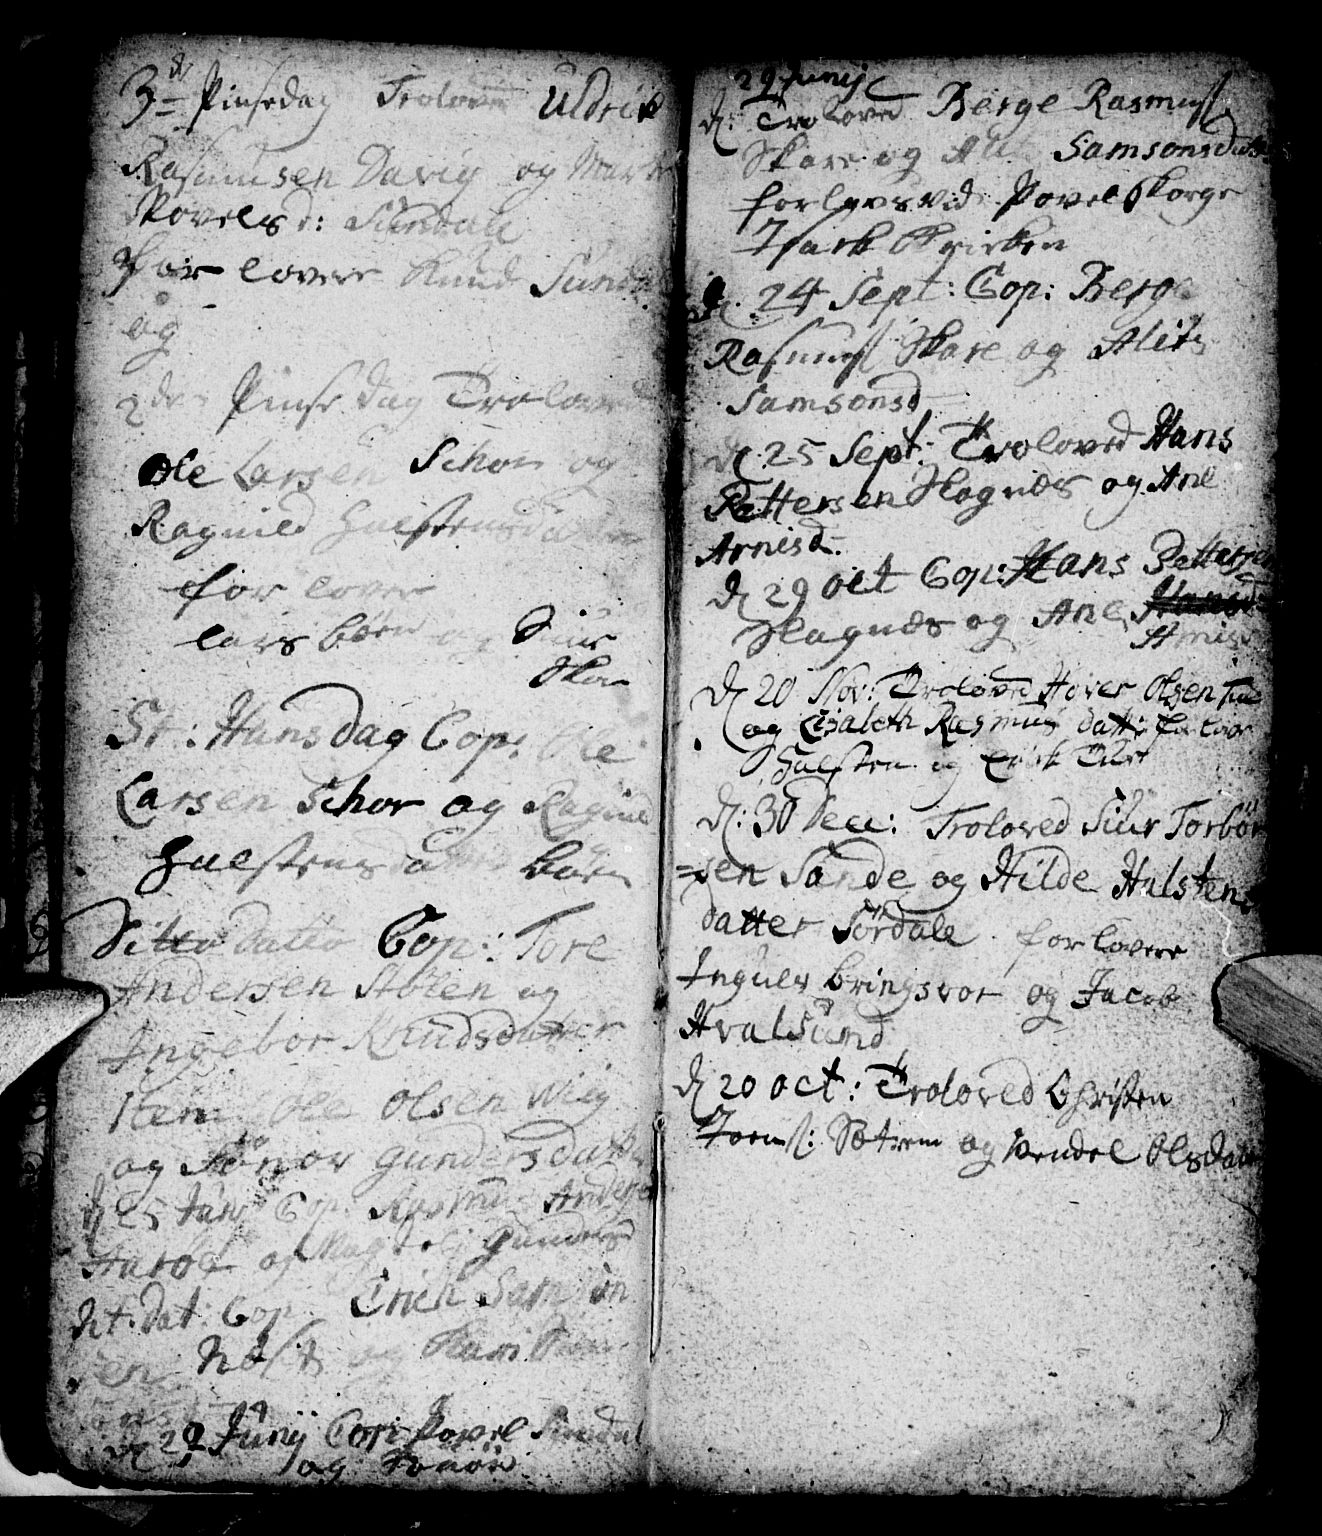 3die Pinsedag Troloved Uldrik
Rasmusen Davig og Mart
Povelsd: Sundall
for lovere Knud Sund
og
2den Pinse dag Troloved
Ole Larsen Schor og
Ragnild Halstensdatter
for lover
lars börn og Siur
Skor
St: Hansdag Cop: Ole
Larsen Schor og Ragnild
Halstensdatter
Ditto Dato Cop: Tore
Andersen Stölen og
Ingebor Knudsdatter
Item Ole Olsen Wiig
og Gundersdatter
d 25 Juny Cop: Rasmus Anders
og Magdel Gundersd
dit. Dat: Cop Erich Sam
og
d 29 Junij Cop: Povel Sundal
og
29 Junij
d: Troloved Berge Rasmus
Skare og Samsonsdatter
forlover Povel Korge
d. 24 Sept: Cop: Berge
Rasmus Skare og Alits
Samsonsd
d 25 Sept: Troloved Hans
Pettersen Hagnæs og Ane
Arnisd.
d 29 oct Cop: Hans Pettersen
Hagnæs og Ane
Arnisd
d 20 Nov: Troloved Hover Olsen
og Lisabeth Rasmus datt: forlover
Halsten og
d: 30 Dec: Troloved Siur Torbör
=sen Sande og Hilde Halstens
datter Sördale forlovere
Inguer bringsvor og Jacob
Hvalsund
d 20 oct: Troloved Christen
Joens: Sætrem og Wendel Olsdatter